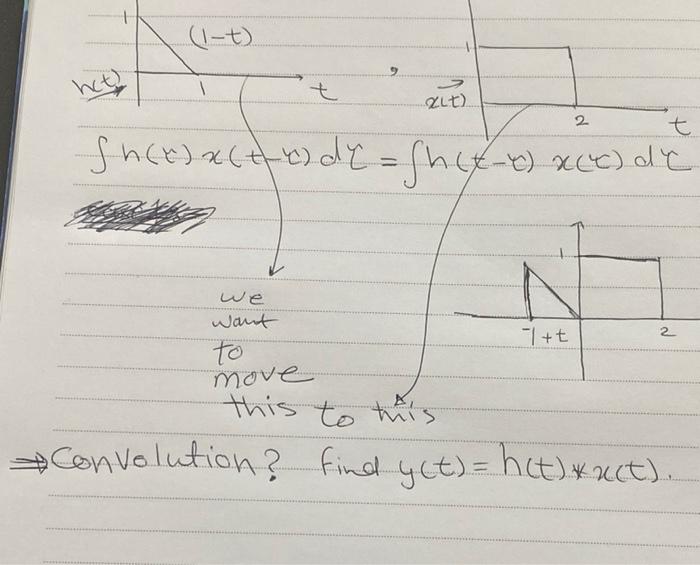 1
(1-t)
h(t)
1
t
,
1
x(t)
2
t
∫h(τ)x(t-τ)dτ = ∫h(t-τ) x(τ) dτ
1
-1+t
2
we
want
to
move
this to this
⇒ Convolution? find y(t) = h(t)*x(t).